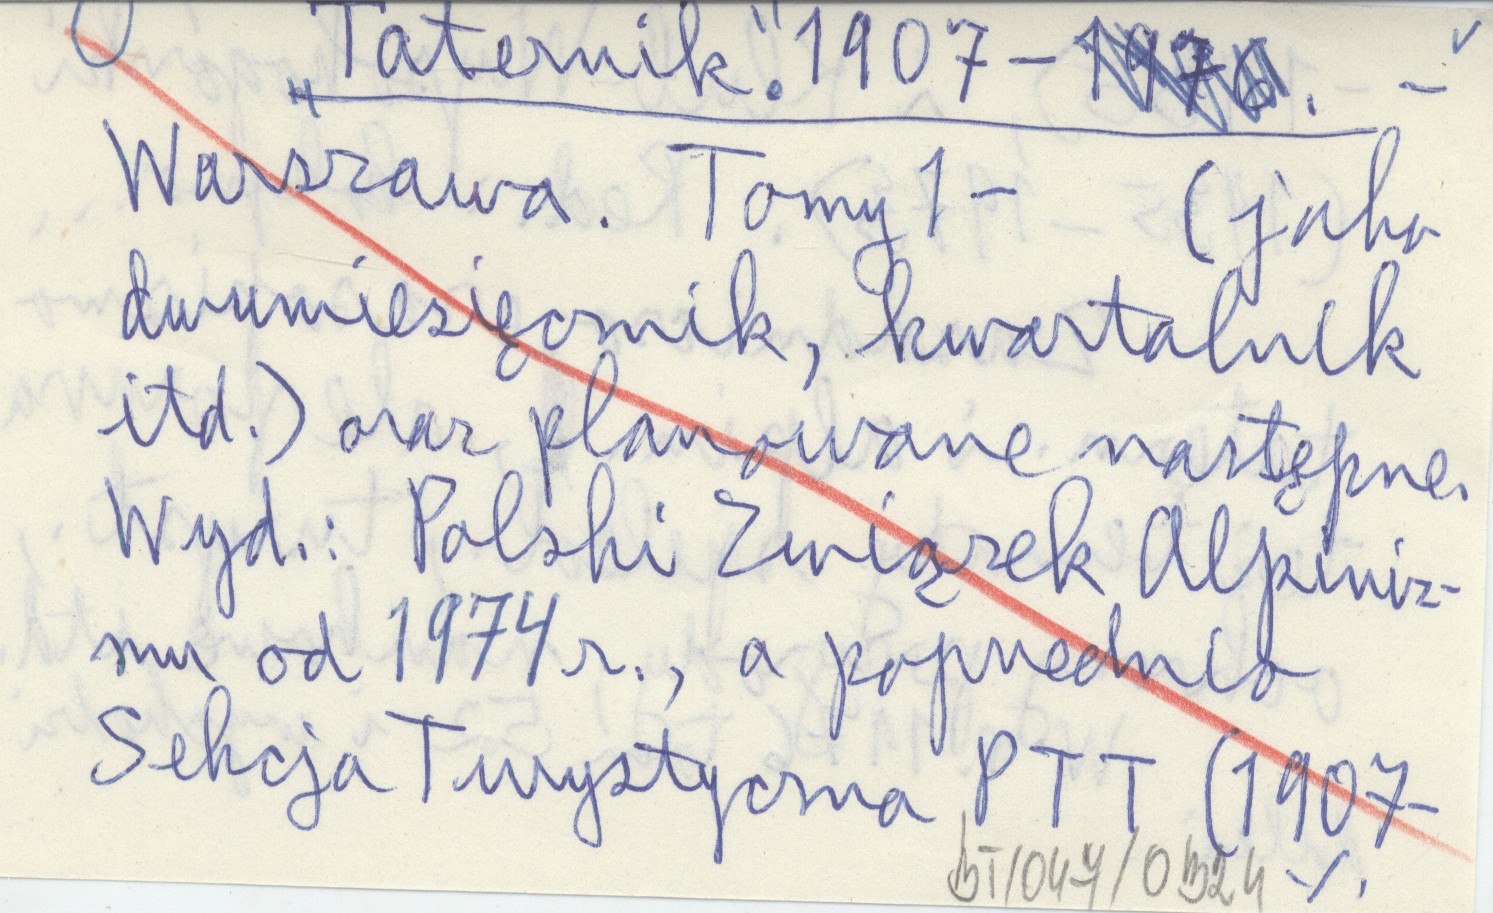 „Taternik”. 1907 - . -
Warszawa. Tomy 1 - (jako
dwumiesięcznik, kwartalnik
itd.) oraz planowane następne.
Wyd.: Polski Związek Alpiniz-
mu od 1974 r., a poprzednio
Sekcja Turystyczna PTT (1907-
BT/047/0324 -/.